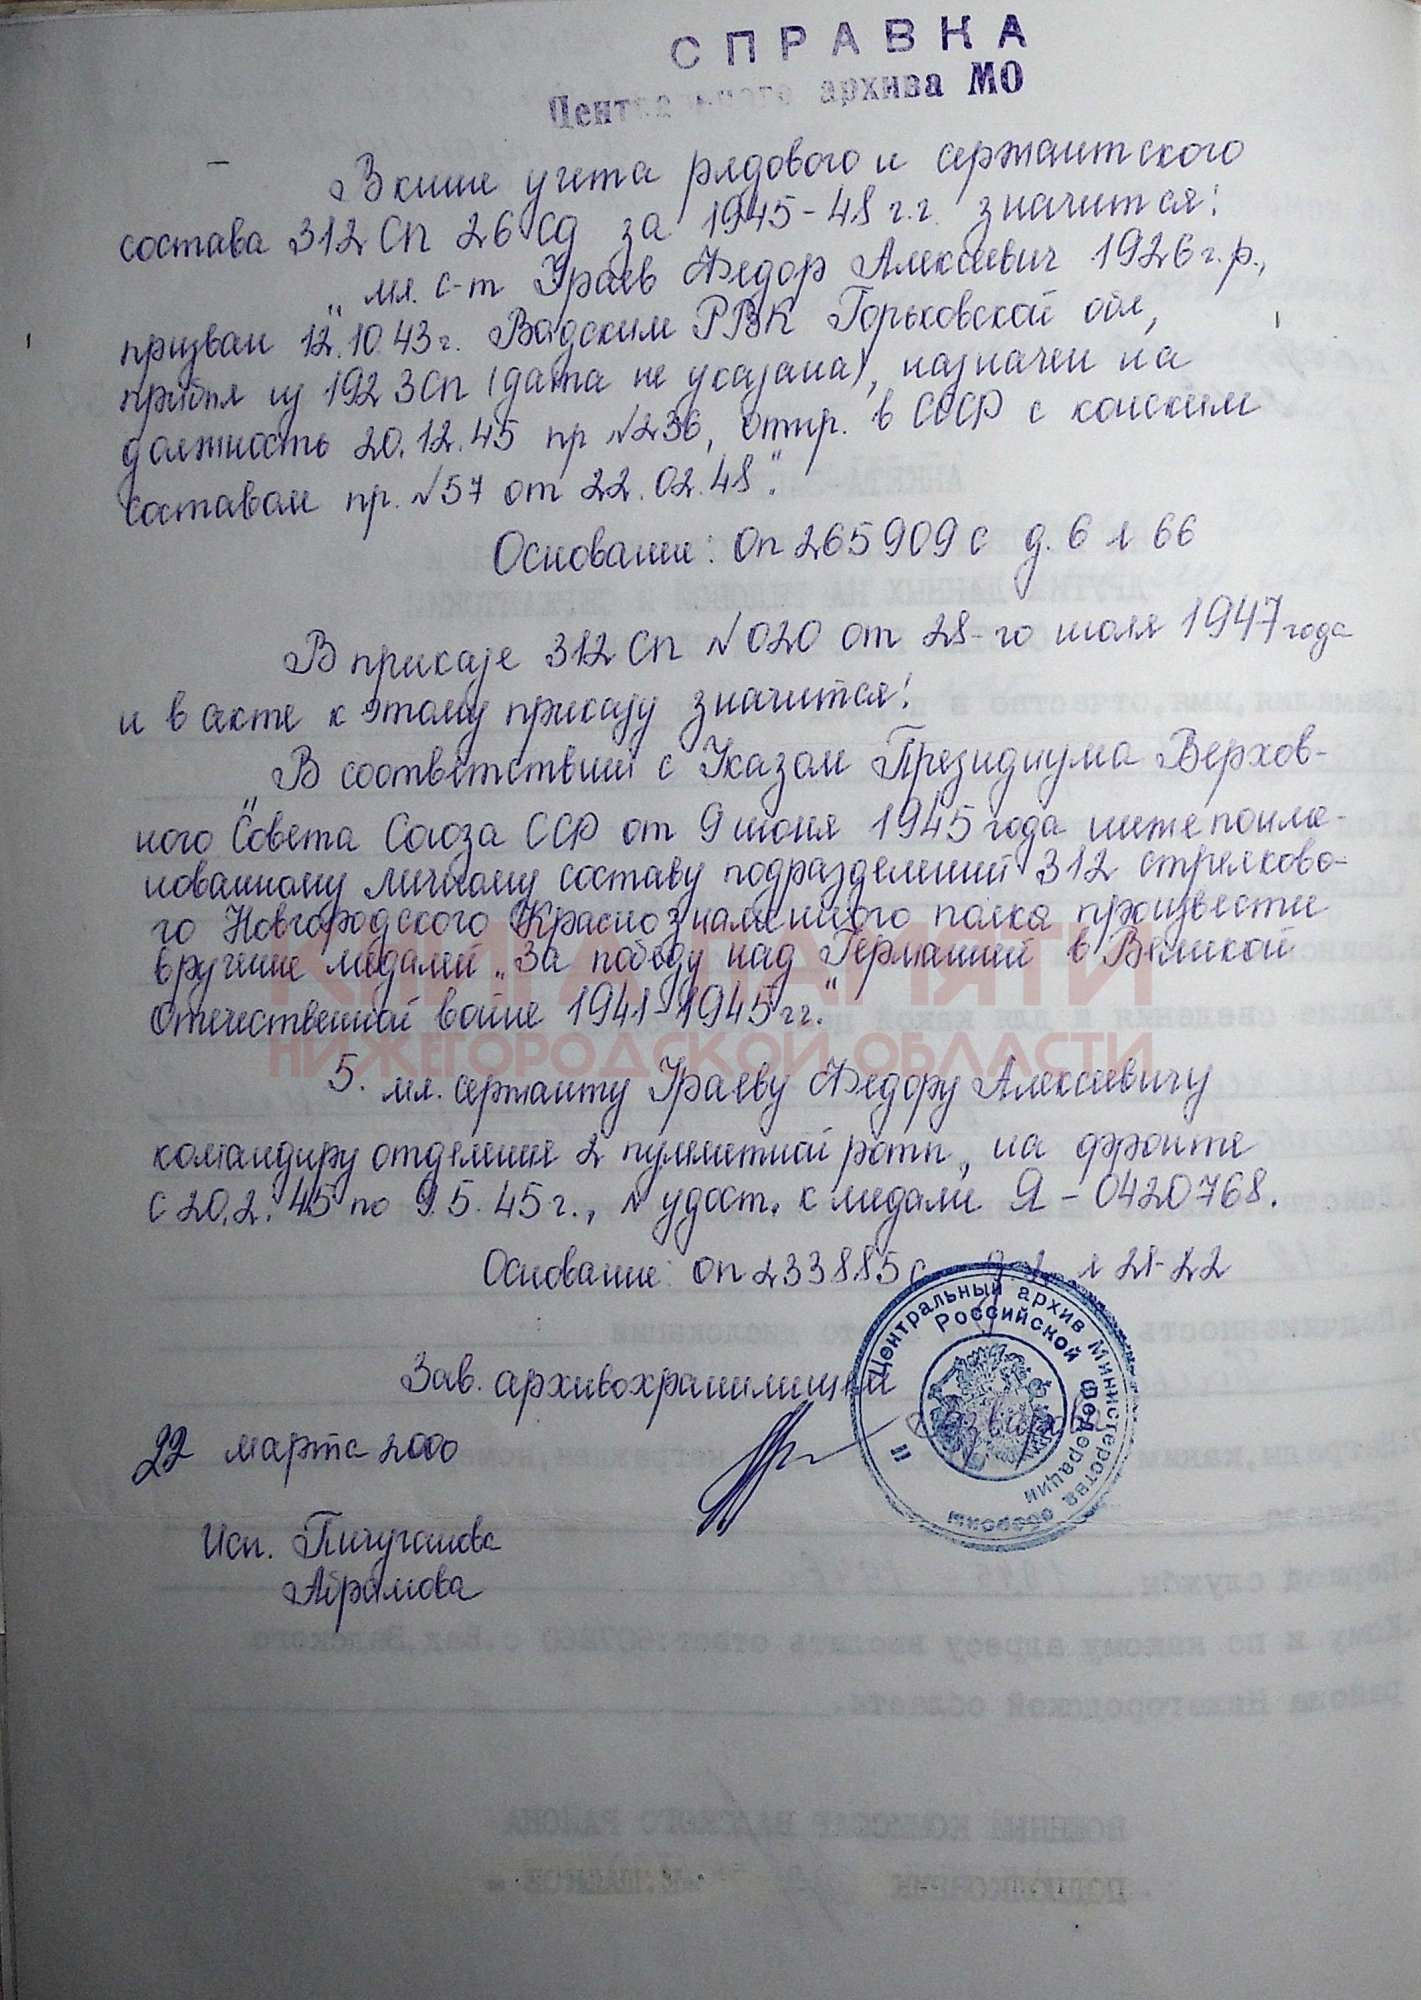 СПРАВКА
Центрального архива МО
В книге учета рядового и сержантского
состава 312 сп 26 сд за 1945-48 г.г. значится:
"мл. с-т Ураев Федор Алексеевич 1926 г.р.,
призван 12.10.43 г. Вадским РВК Горьковской обл,
прибыл из 192 ЗСП (дата не указана), назначен на
должность 20.12.45 пр №236, отпр. в СССР с конским
составом пр. №57 от 22.02.48".
Основание: оп 265909с д. 6 л 66
В приказе 312 сп №020 от 28-го июля 1947 года
и в акте к этому приказу значится:
"В соответствий с Указом Президиума Верхов-
ного Совета Союза ССР от 9 июня 1945 года нижепоиме-
нованному личному составу подразделений 312 стрелково-
го Новгородского Краснознаменного полка произвести
вручение медалей „За победу над Германией в Великой
Отечественной войне 1941-1945 гг."
5. мл. сержанту Ураеву Федору Алексеевичу
командиру отделения 2 пулеметной роты, на фронте
с 20.2.45 по 9.5.45 г., № удост. к медали Я-0420768.
Основание: оп 233885с д л 21-22
Зав. архивохранилищем
22 марта 2000
Исп. Пичугинова
Абрамова
Центральный архив Министерства обороны
Российской Федерации
КНИГА ПАМЯТИ
НИЖЕГОРОДСКОЙ ОБЛАСТИ